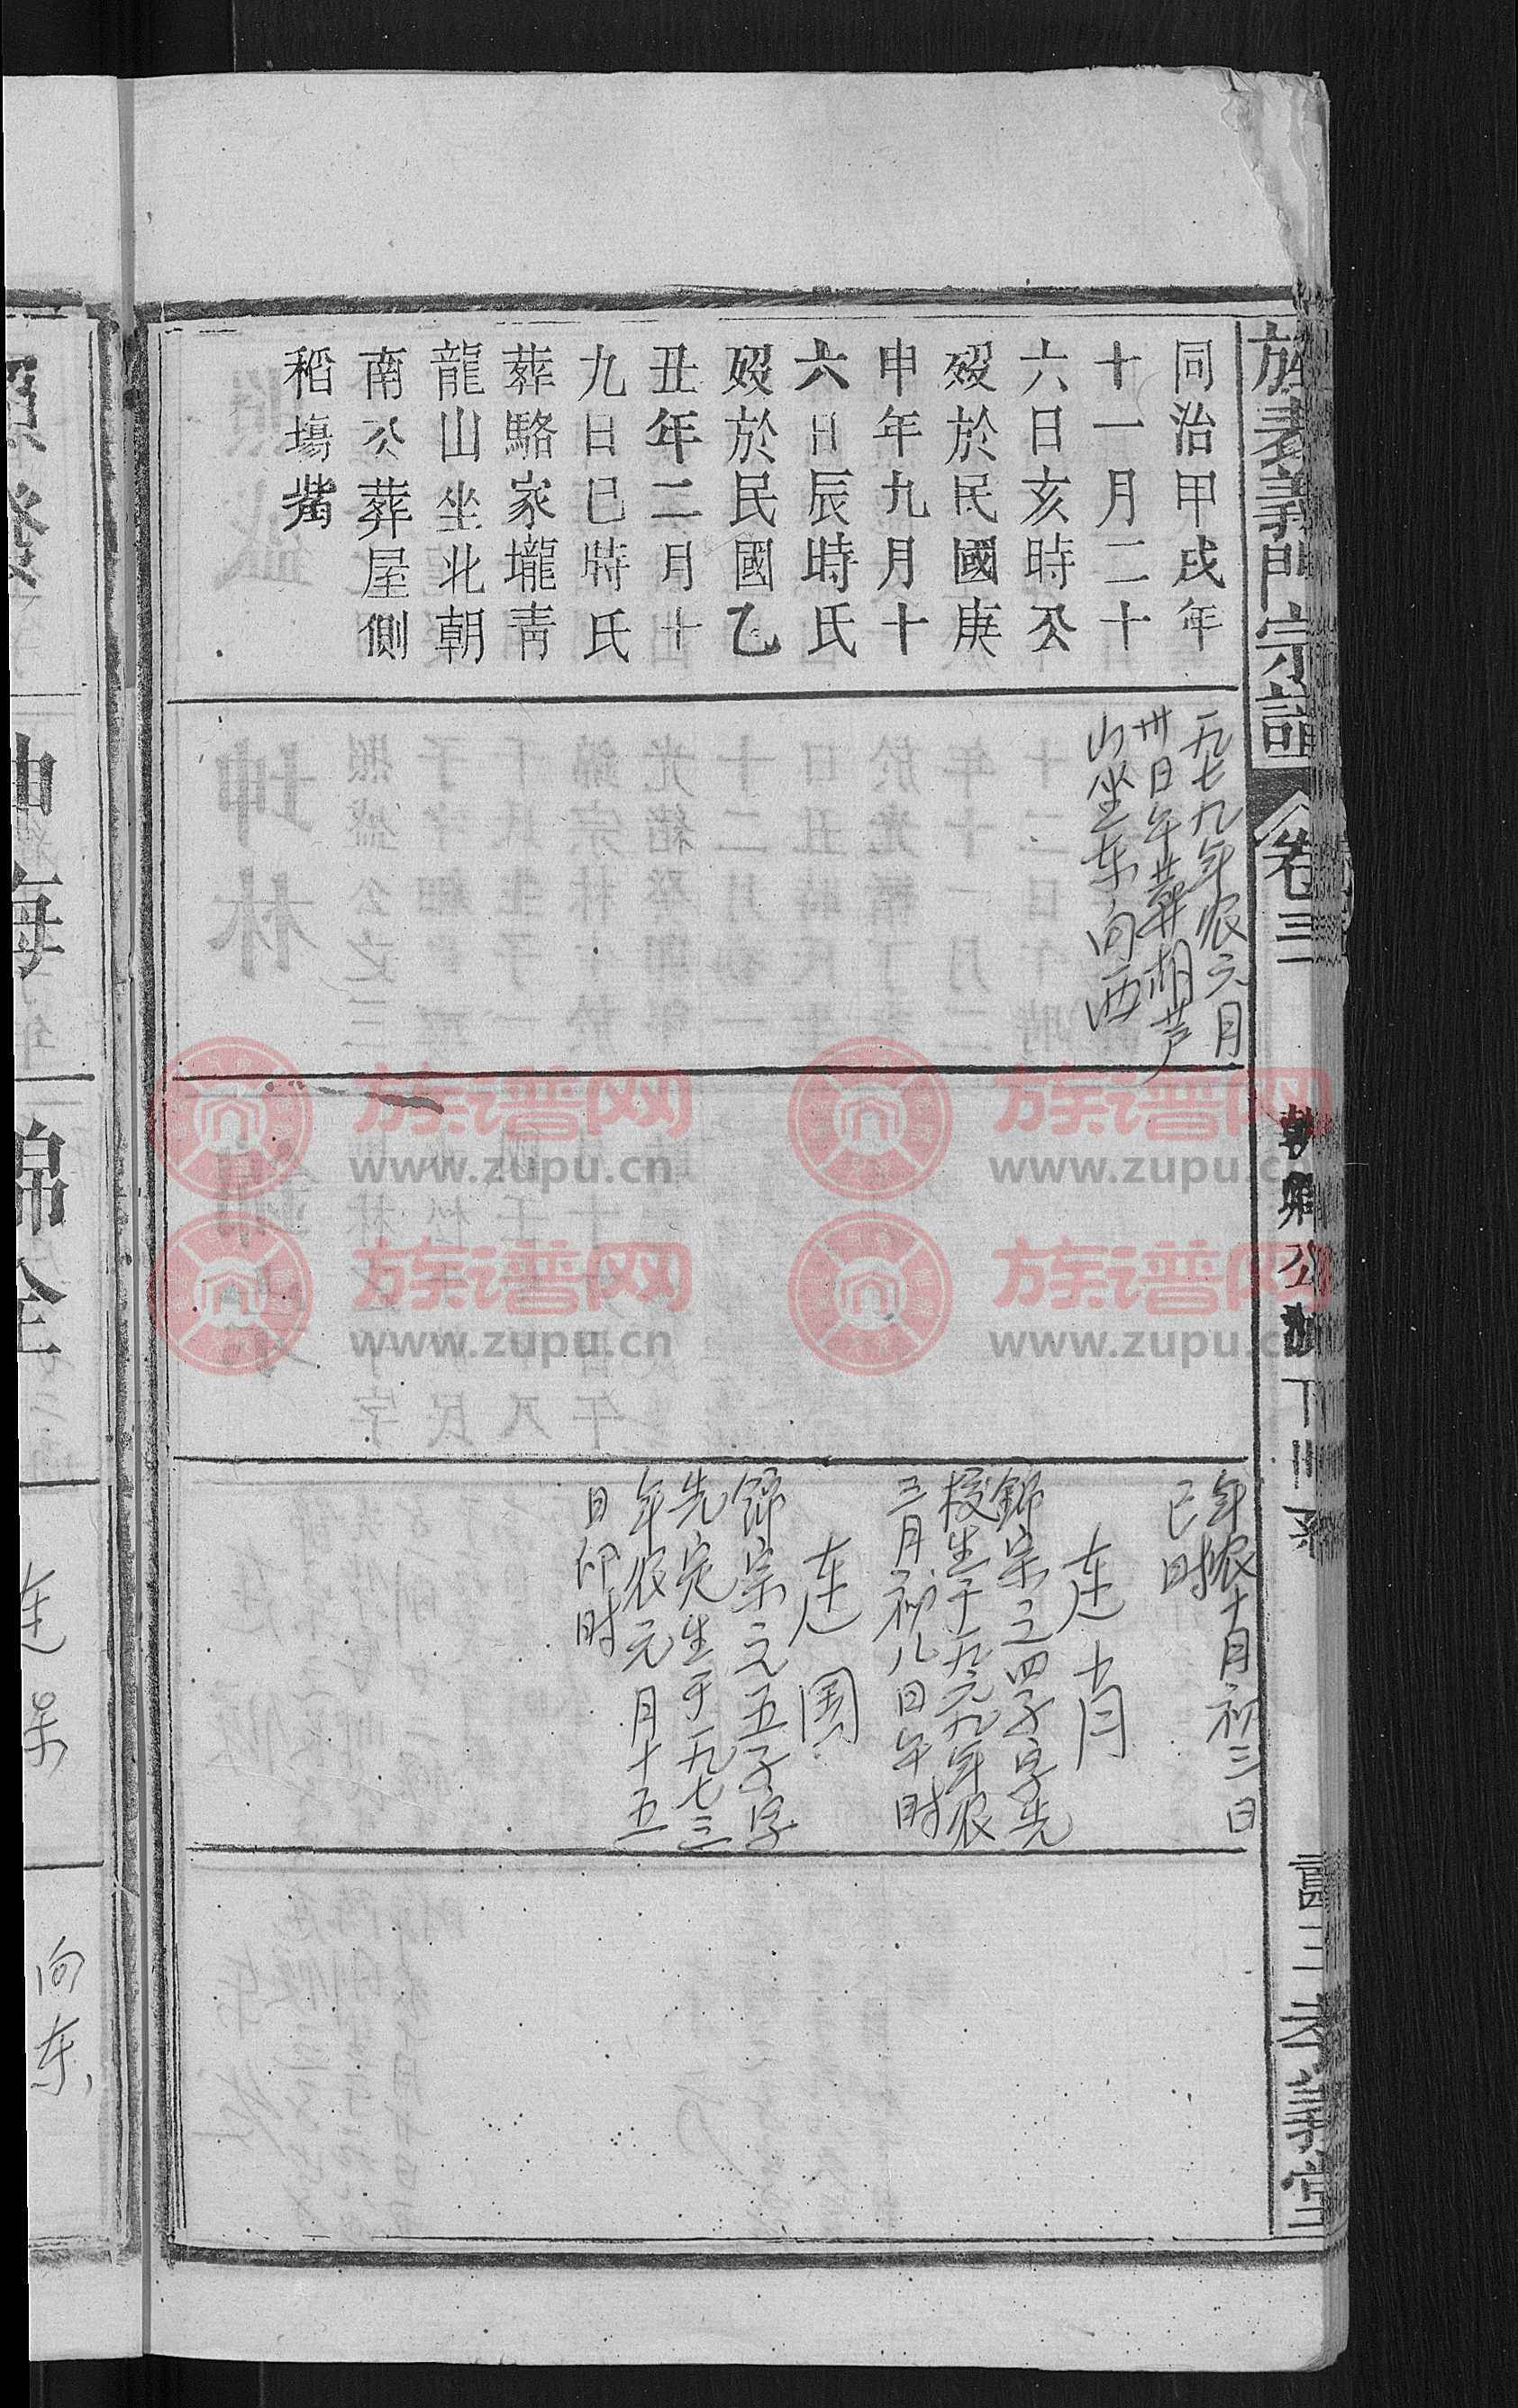 旌表義門宗譜
卷三
公
下川系
孝義堂
同治甲戌年
十一月二十
六日亥時公
歿於民國庚
申年九月十
六日辰時氏
歿於民國乙
丑年二月十
九日巳時氏
葬駱家壠青
龍山坐北朝
南公葬屋側
稻塲嘴
一九七九年农六月
卅日午葬葫芦
山坐东向西
年农十月初三日
巳时
连肖
錦宗之四子字先
生于一九六九年农
三月初八日午时
连国
錦宗之五子字
先定生于一九七三
年农元月十五
日卯时
坤海
錦全
连
向东
族谱网
www.zupu.cn
族谱网
www.zupu.cn
族谱网
www.zupu.cn
族谱网
www.zupu.cn